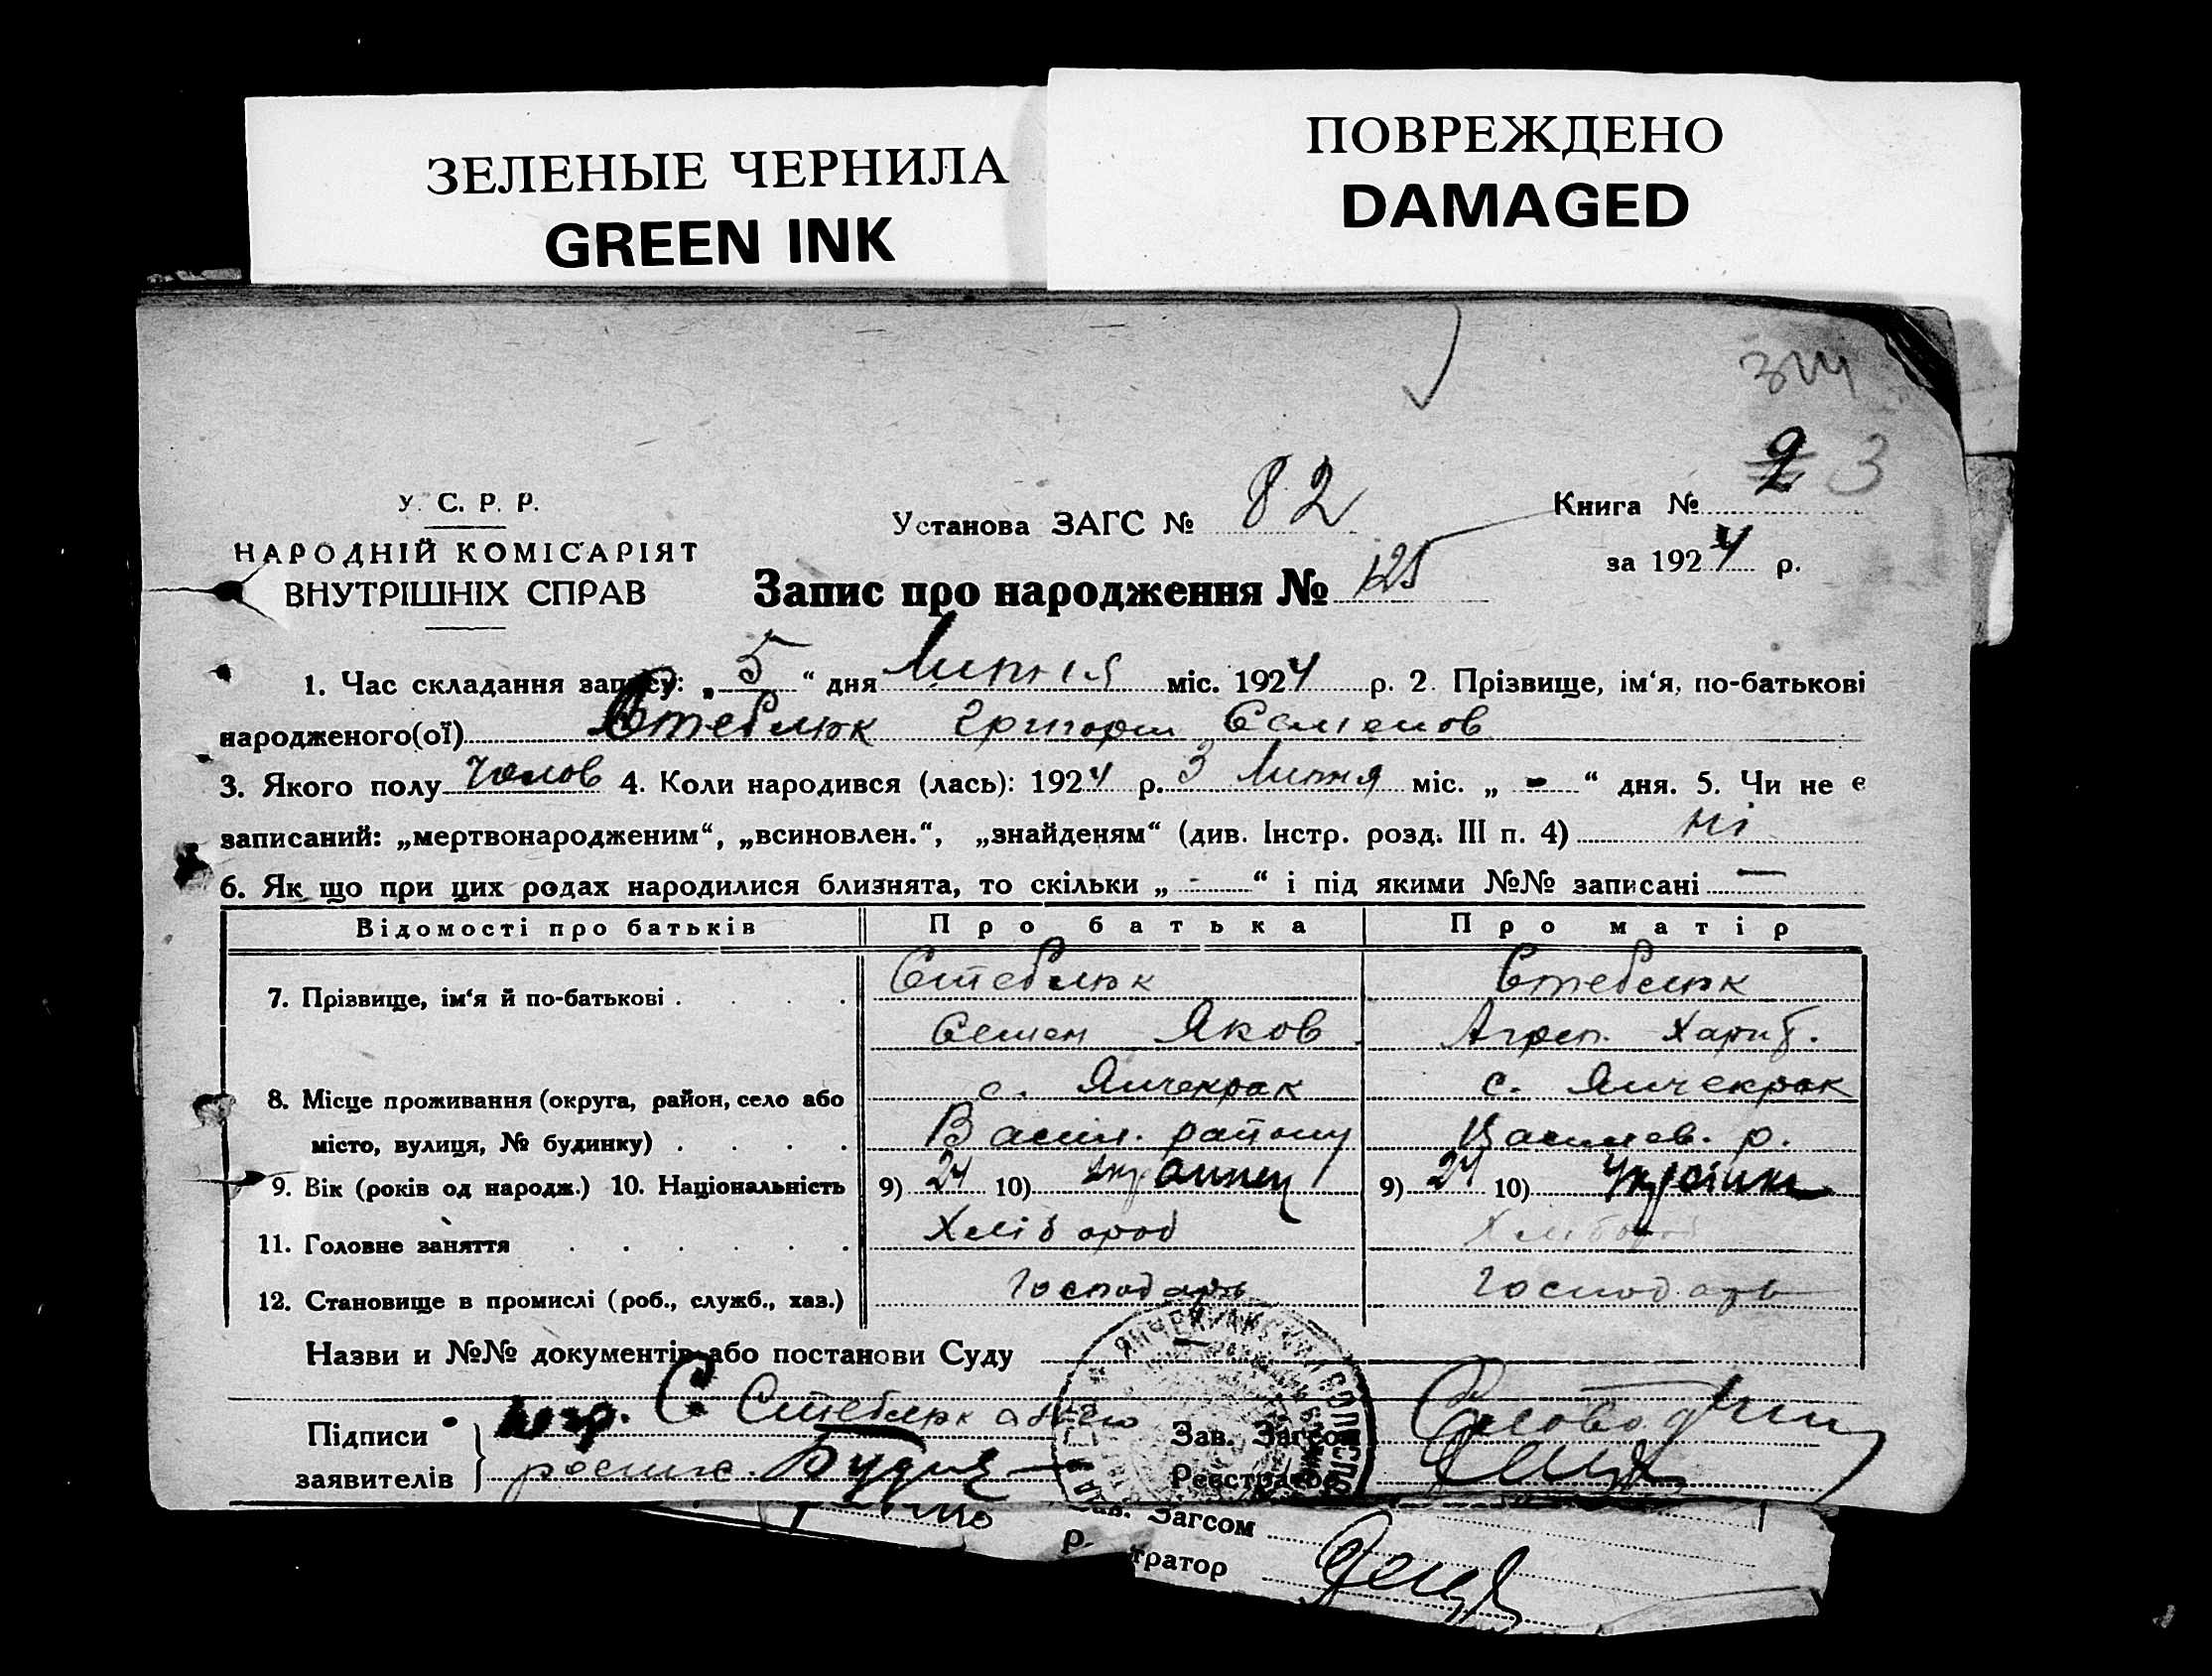 ЗЕЛЕНЫЕ ЧЕРНИЛА
GREEN INK
ПОВРЕЖДЕНО
DAMAGED
У. С. Р. Р.
НАРОДНІЙ КОМІСАРІЯТ
ВНУТРІШНІХ СПРАВ
Установа ЗАГС № 82
Книга № 2 3
за 1924 р.
Запис про народження № 125
1. Час складання запису: „5“ дня Липня міс. 1924 р. 2. Прізвище, ім‘я, по-батькові
народженого(ої) Стеблюк Григори Семенов
3. Якого полу Чолов 4. Коли народився (лась): 1924 р. 3 Липня міс. „ - “ дня. 5. Чи не є
записаний: „мертвонародженим“, „всиновлен.“, „знайденям“ (див. Інстр. розд. III п. 4) Ні
6. Як що при цих родах народилися близнята, то скільки „ - “ і під якими №№ записані —
Відомості про батьків Про батька Про матір
7. Прізвище, ім‘я й по-батькові . . . . Стеблюк Стеблюк
Семен Яков Агреп. Харит.
8. Місце проживання (округа, район, село або с. Янчекрак с. Янчекрак
місто, вулиця, № будинку) . . . . Васил. району Василев. р.
9. Вік (років од народж.) 10. Національність 9) 24 10) 9) 24 10)
11. Головне заняття . . . . . . Хлібороб Хлібороб
12. Становище в промислі (роб., служб., хаз.) Господарь Господарь
Назви и №№ документів або постанови Суду —
Підписи С Стеблюк Зав. Загсом
заявителів Реєстратор
Зав. Загсом
тратор